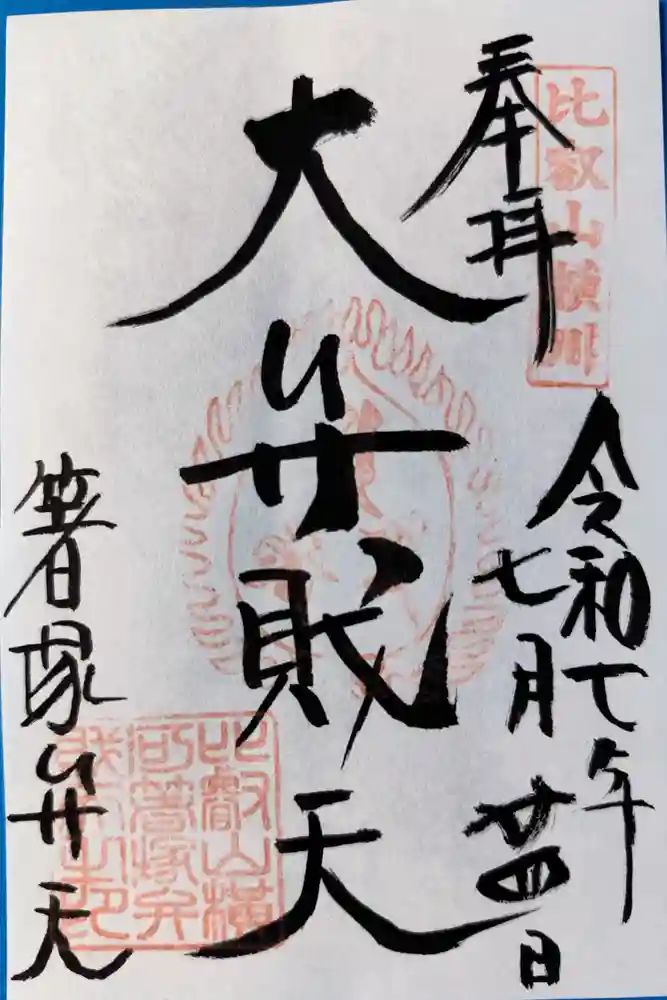 比叡山横川
奉拝
令和七年
七月廿四日
大弁財天
箸塚弁天
比叡山横
箸塚弁